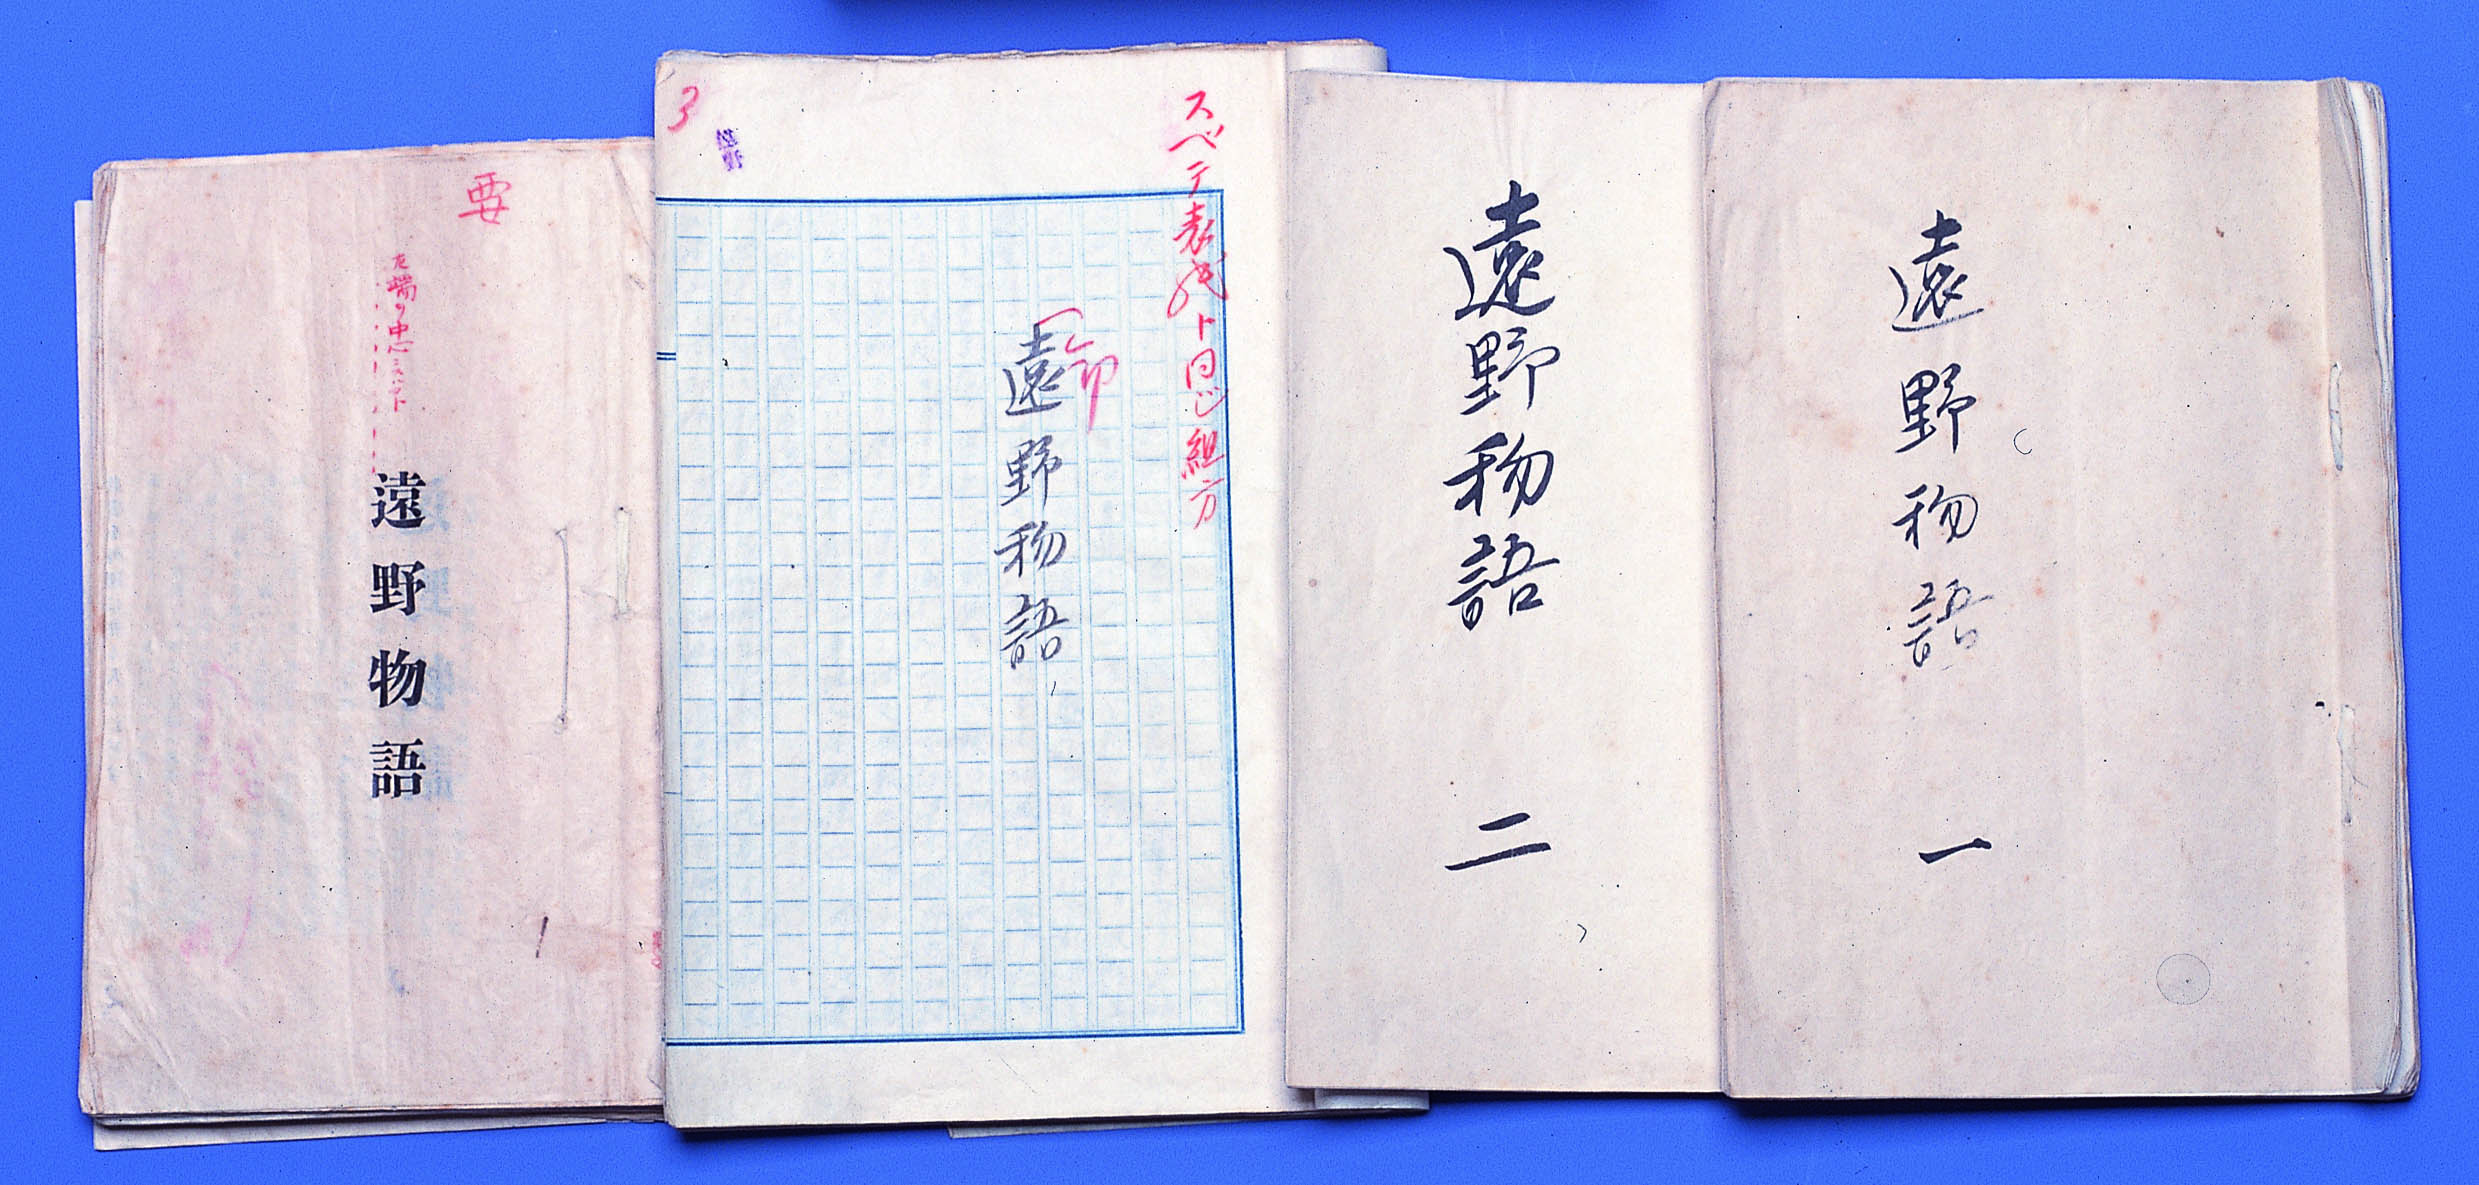 遠野物語
一
遠野物語
二
スベテ表紙ト同じ組方
遠野物語
3
遠野
要
遠野物語